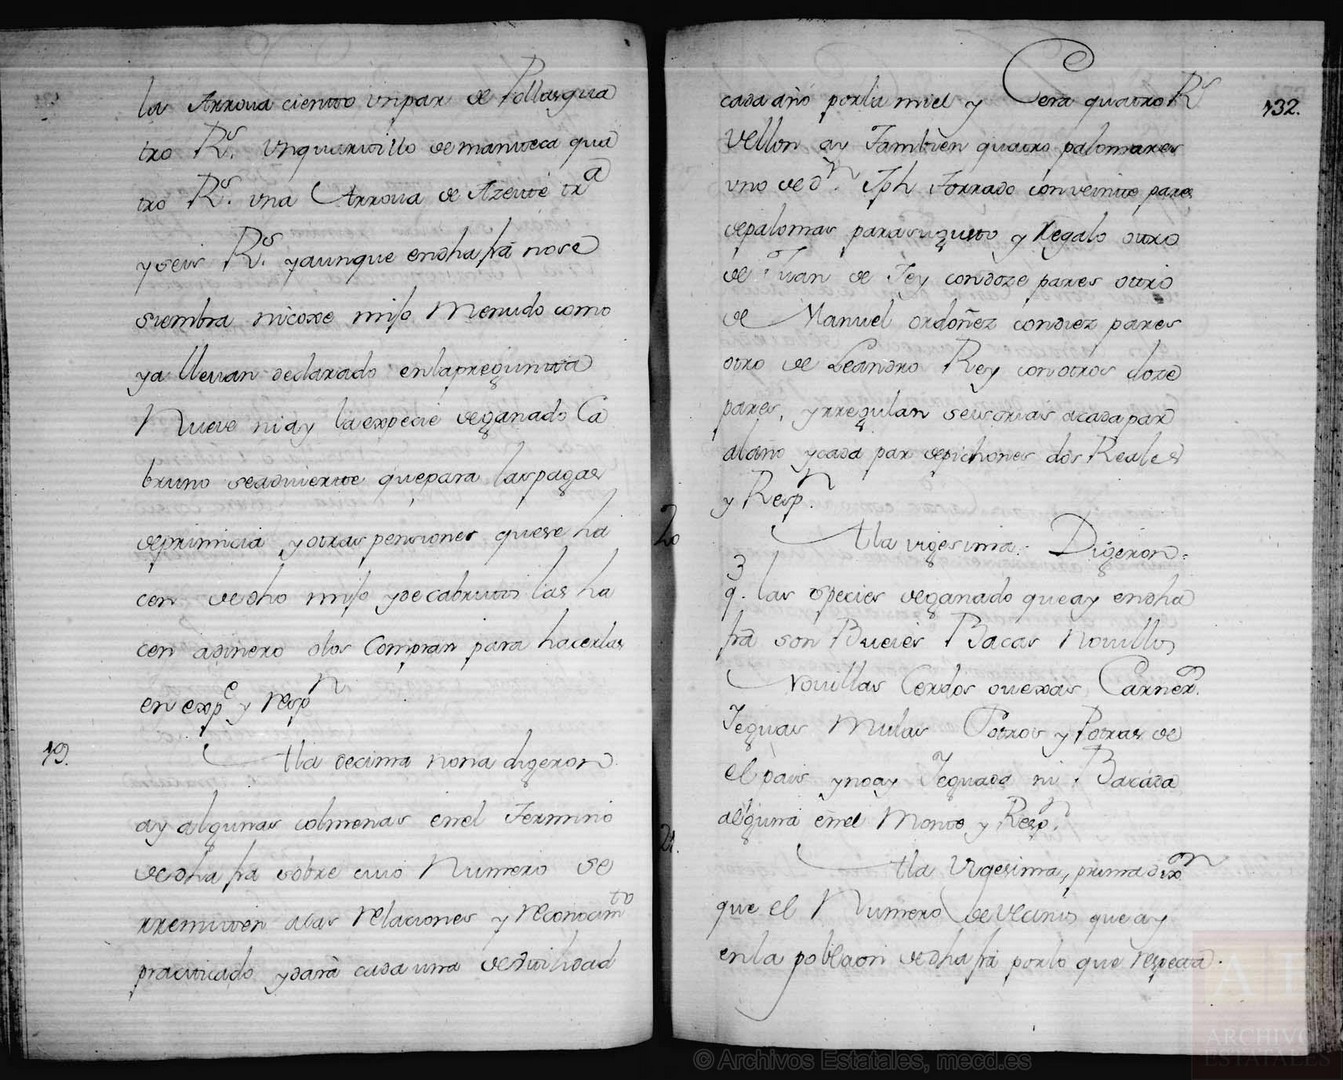 la Arroua ciento vnpar de Pollasqua
tro Rˢ. Vnquartillo demanteca qua
tro Rˢ. vna Arroua de Azeite trᵃ
yseis Rˢ. yaunque endha frâ nose
siembra nicoxe mijo Menudo como
ya lleuan declarado enlapregunta
Nueve niay la expecie deganado Ca
bruno seadvierte quepara laspagas
deprimicia, yotras pensiones quese ha
cen dedho mijo ydecabruno las ha
cen adinero olos Compran para hacerlas
en expᵉ y respⁿ
19. Ala decima nona digeron
ay algunas colmenas enel Termino
dedha frâ sobre cuio Numero se
rremiten alas relaciones y reconocimᵗᵒ
practicado, ydará cada una deutilidad
132.
cada año porla miel y Cera quatro Rˢ
Vellon ay Tambien quatro palomares
vno de dⁿ. Jph Torrado conveinte pares
depalomas parasugusto y Regalo otro
de Juan de Rey condoze pares otro
de Manuel ordoñez condiez pares
otro de Leandro Rey conotros doze
pares, yrregulan seiscrias acada par
alaño ycada par depichones dos Reales
y Respⁿ.
20 Ala vigesima. Digeron
q. las especies deganado queay endha
frâ son Bueies Bacas Nouillos
Nouillas Cerdos ouexas, Carnerˢ.
Yeguas Mulas Potros y Potras de
el pais ynoay Yeguada ni Bacada
alguna enel Monte y Respⁿ.
21. Ala Vigesima, prima dixⁿ
que el Numero deVecinos que ay
enla poblaon dedhafrâ porlo que respecta
© Archivos Estatales, mecd.es
ARCHIVOS
ESTATALES